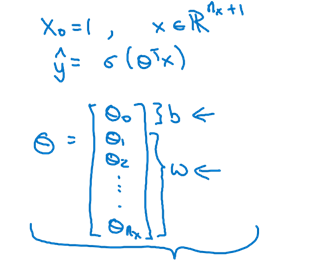 x₀=1, x∈ℝⁿˣ⁺¹
ŷ = σ(θᵀx)
θ = [θ₀ θ₁ θ₂ ⋮ θₙₓ]
} b ←
} w ←